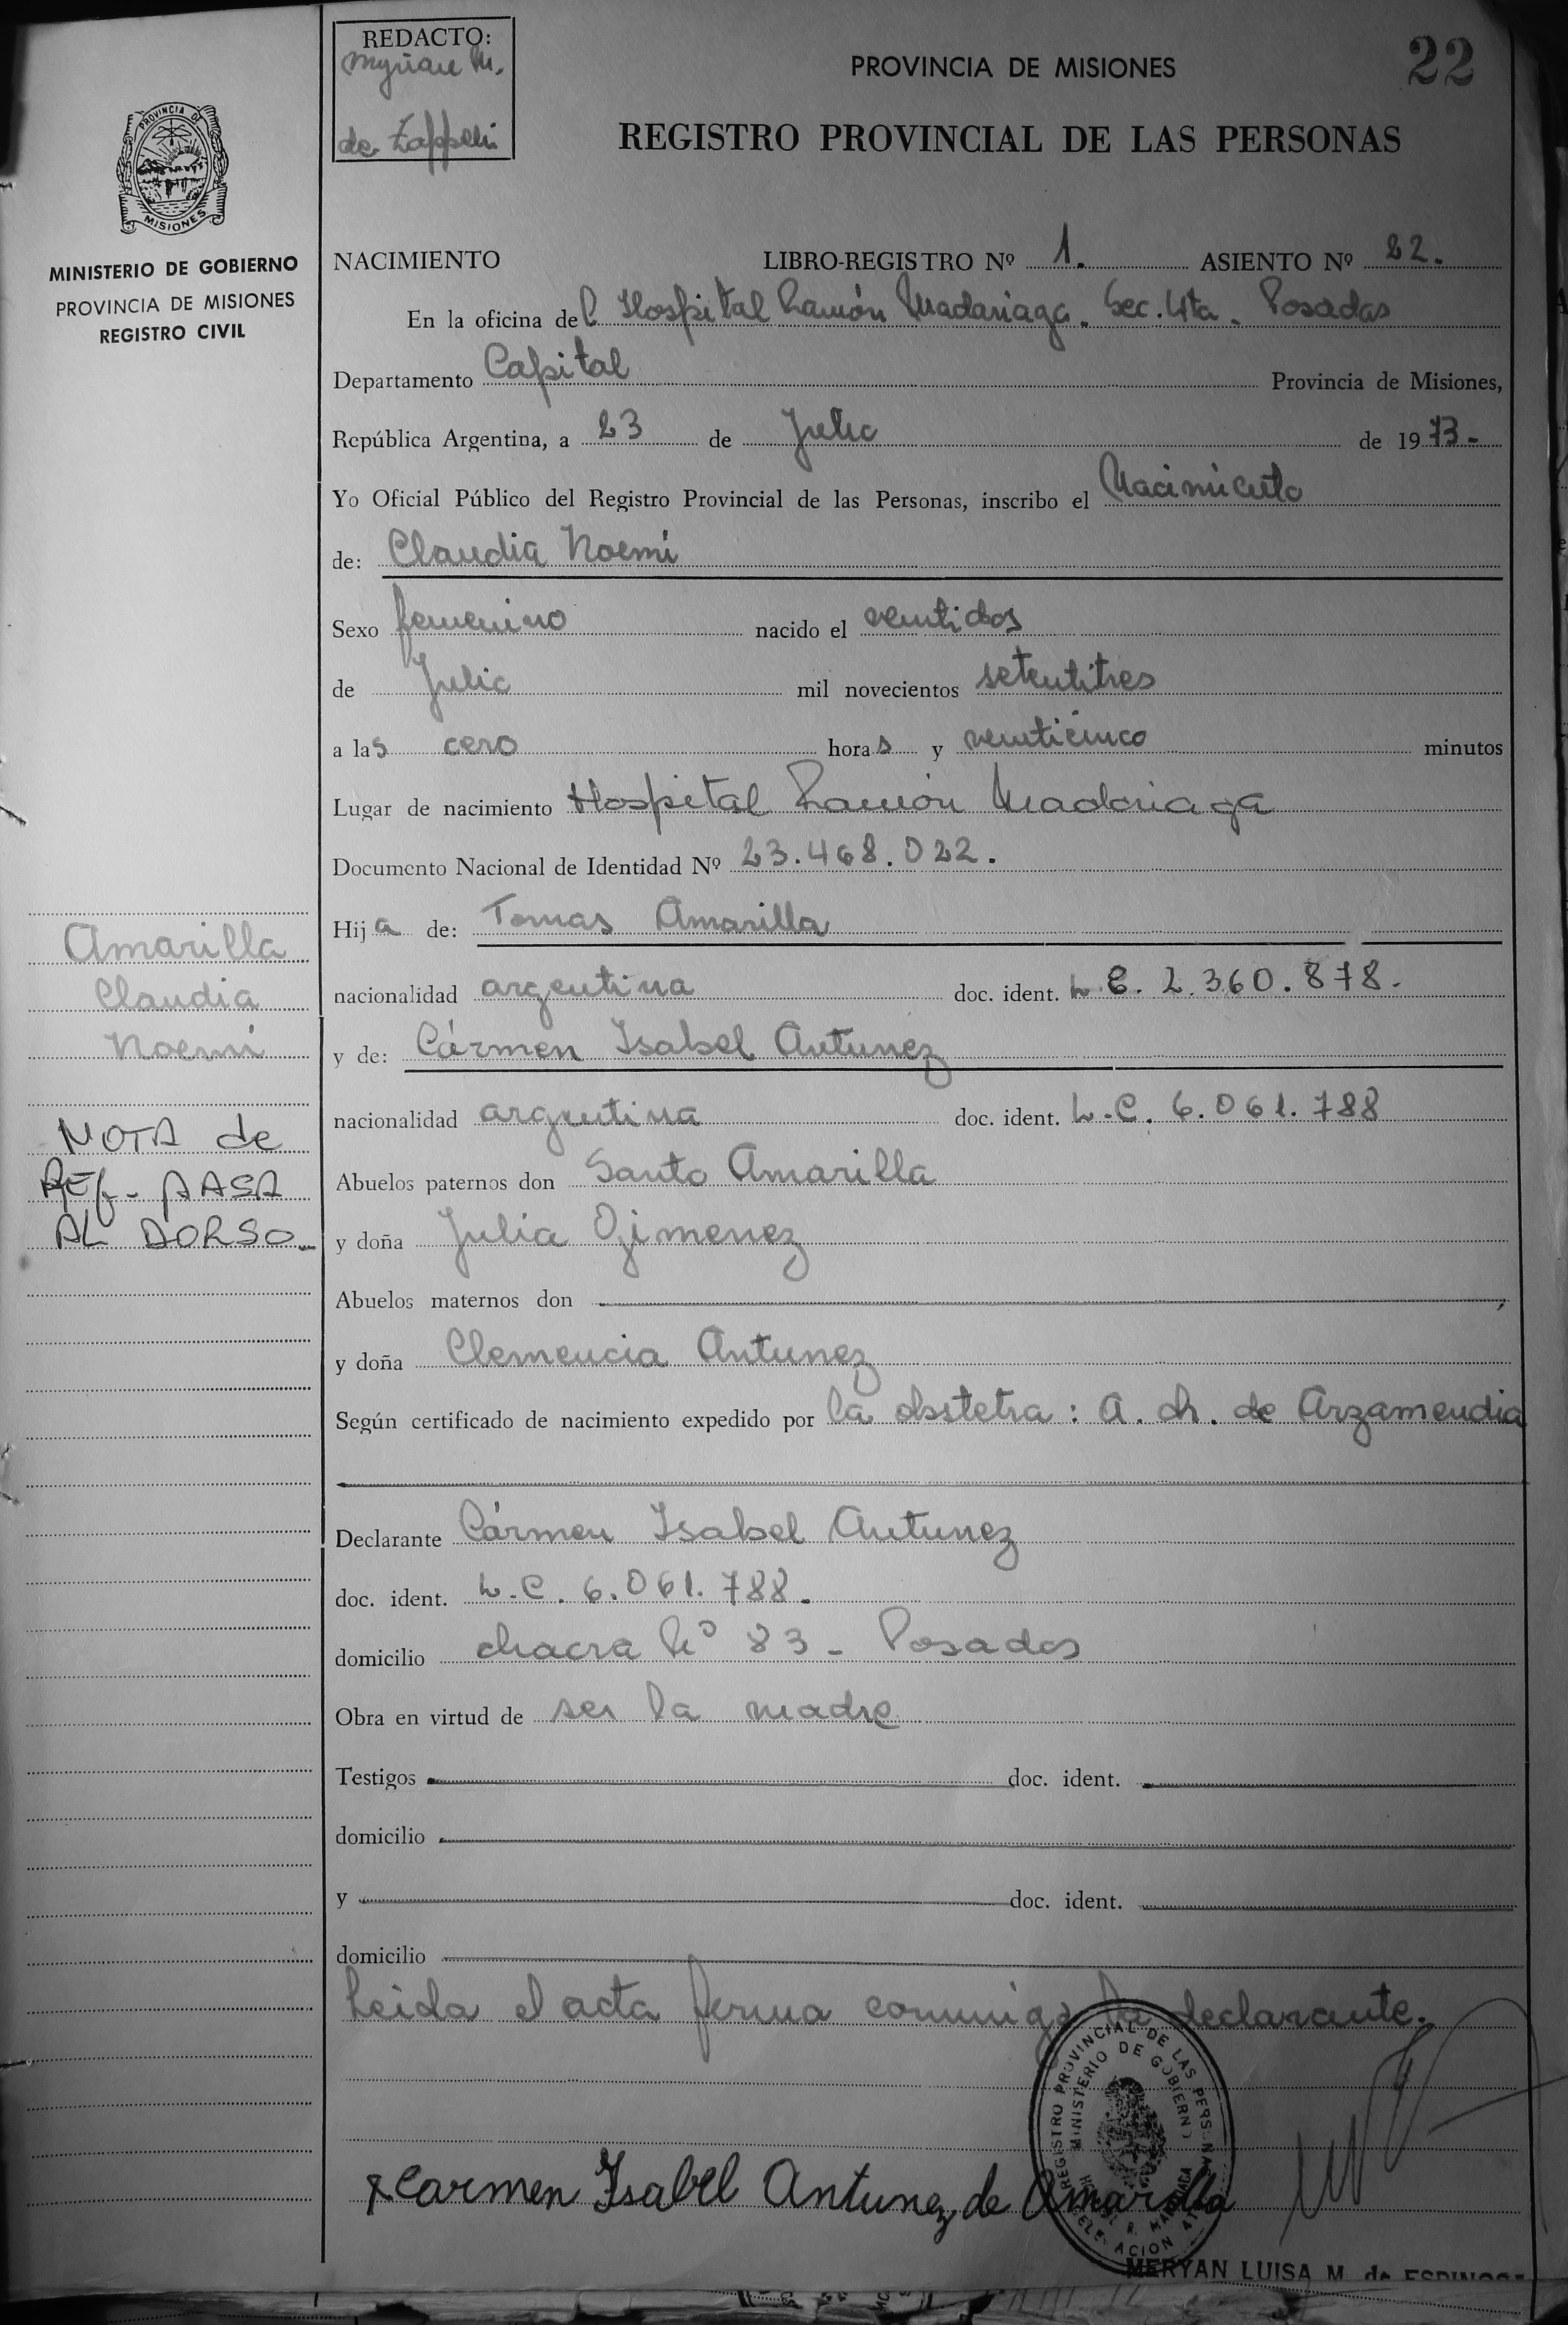 REDACTO:
de Zappelli
PROVINCIA DE MISIONES
22
REGISTRO PROVINCIAL DE LAS PERSONAS
PROVINCIA DE
MISIONES
MINISTERIO DE GOBIERNO
PROVINCIA DE MISIONES
REGISTRO CIVIL
NACIMIENTO LIBRO-REGISTRO Nº 1. ASIENTO Nº 22.
En la oficina del Hospital Ramón Madariaga. Sec. 4ta. Posadas
Departamento Capital Provincia de Misiones,
República Argentina, a 23 de Julio de 1973-
Yo Oficial Público del Registro Provincial de las Personas, inscribo el Nacimiento
de: Claudia Noemi
Sexo femenino nacido el ventidos
de Julio mil novecientos setentitres
a las cero horas y venticinco minutos
Lugar de nacimiento Hospital Ramón Madariaga
Documento Nacional de Identidad Nº 23.468.022.
Hija de: Tomas Amarilla
nacionalidad argentina doc. ident. L.E. 2.360.878.
y de: Cármen Isabel Antunez
nacionalidad argentina doc. ident. L.C. 6.061.788
Abuelos paternos don Santo Amarilla
y doña Julia Gimenez
Abuelos maternos don
y doña Clemencia Antunez
Según certificado de nacimiento expedido por la obstetra: A. Ch. de Arzamendia
Declarante Cármen Isabel Antunez
doc. ident. L.C. 6.061.788.
domicilio chacra Nº 83 - Posadas
Obra en virtud de ser la madre
Testigos doc. ident.
domicilio
y doc. ident.
domicilio
Leida el acta firma conmigo la declarante.
Amarilla
Claudia
Noemi
NOTA de
REf. PASA
AL DORSO
REGISTRO PROVINCIAL DE LAS PERSONAS
MINISTERIO DE GOBIERNO
Carmen Isabel Antunez de Amarilla
MERYAN LUISA M. de